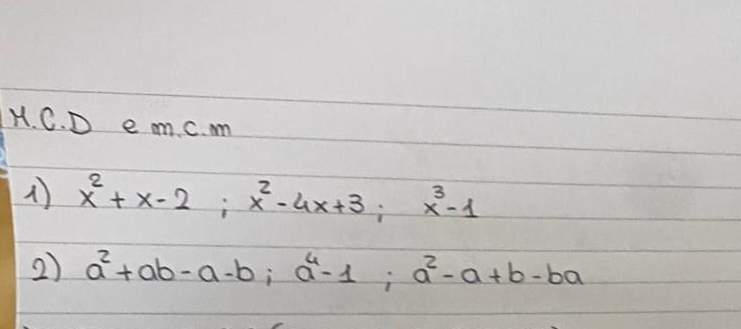 M.C.D e m.c.m
1) x²+x-2 ; x²-4x+3 ; x³-1
2) a²+ab-a-b ; a⁴-1 ; a²-a+b-ba